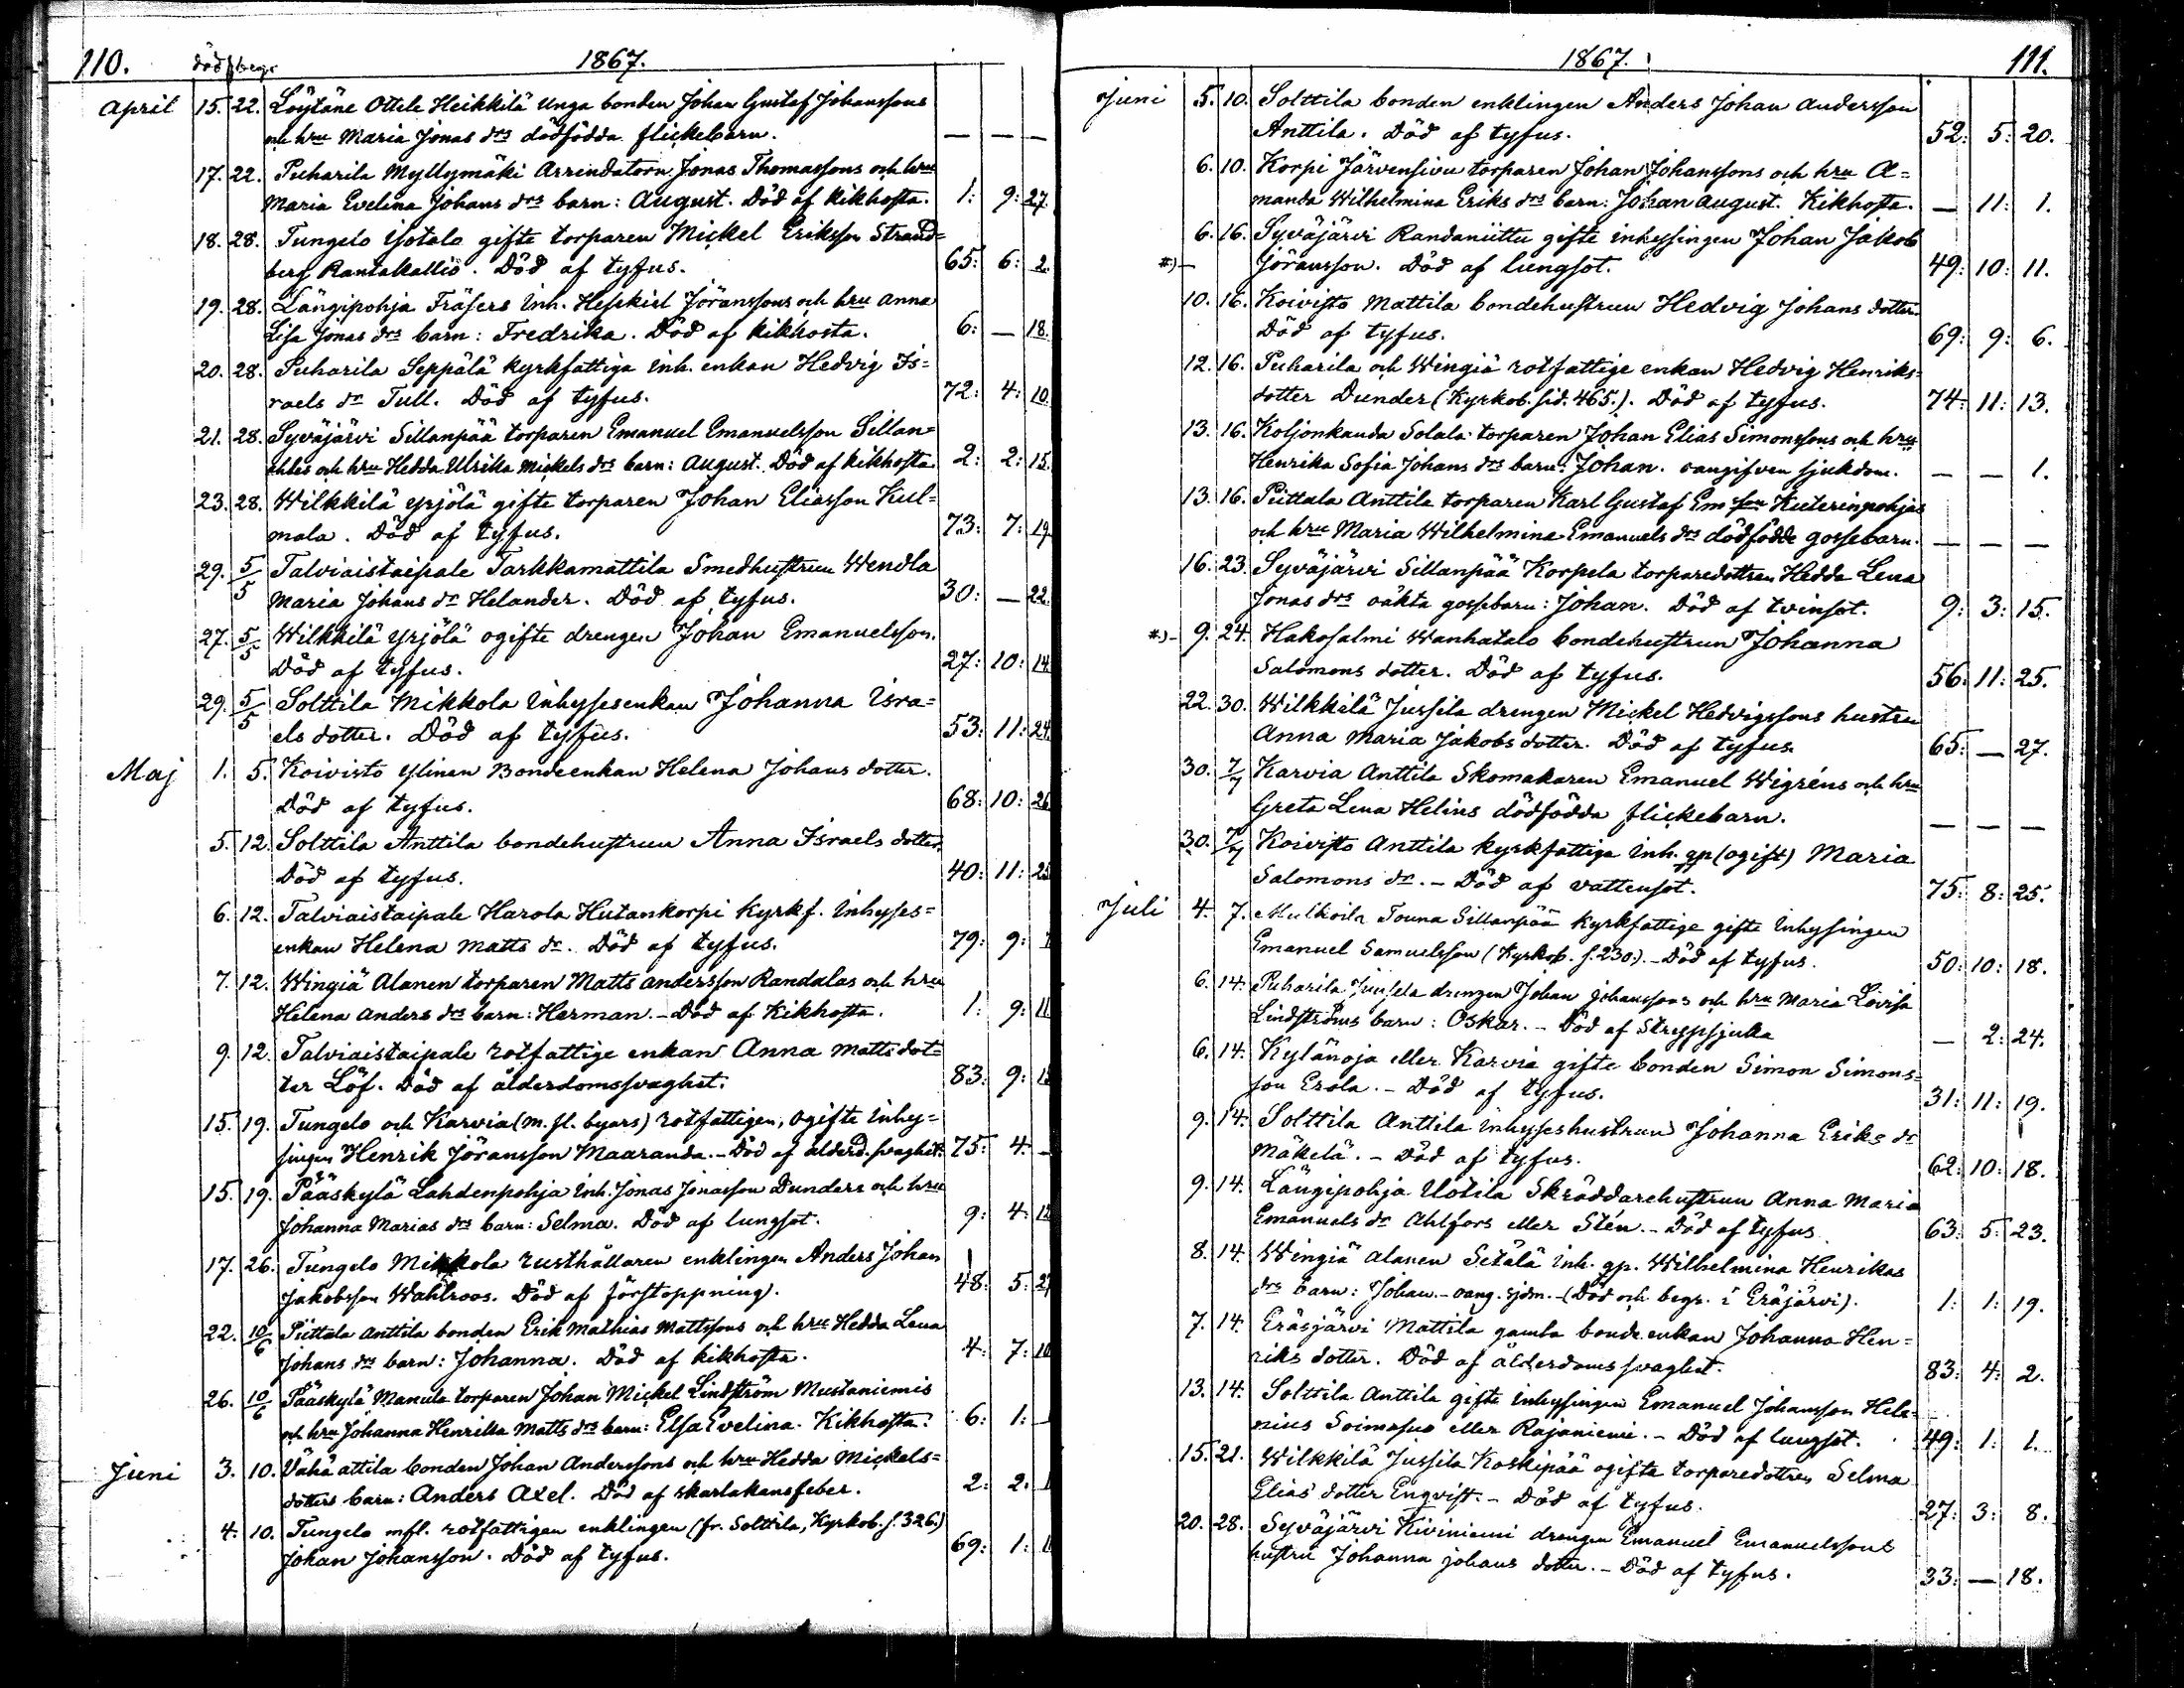 110. död begr 1867.
April 15. 22. Löytäne Ottile Heikkilä unga bonden Johan Gustaf Johanssons
och hru Maria Jonas drs dödfödda flickebarn. — — —
17. 22. Puharila Myllymäki Arrendatorn Jonas Thomassons och hru
Maria Evelina Johans drs barn: August. Död af kikhosta. 1: 9: 27.
18. 28. Tungelo Yotalo gifte torparen Mickel Eriksson Strand-
berg Rantakallio. Död af tyfus. 65: 6: 2.
19. 28. Längipohja Fräsers inh. Heskiel Jöranssons och hru Anna
Lisa Jonas drs barn: Fredrika. Död af kikhosta. 6: — 18.
20. 28. Puharila Seppälä kyrkfattiga inh. enkan Hedvig Is-
raels dr Tull. Död af tyfus. 72: 4: 10.
21. 28. Syväjärvi Sillanpää torparen Emanuel Emanuelsson Sillan-
och hru Hedda Ulrika Mickels drs barn: August. Död af kikhosta. 2: 2: 15.
23. 28. Wilkkilä Yrjölä gifte torparen Johan Eliasson Kul-
mala. Död af tyfus. 73: 7: 19.
29. 5/5 Talviaistaipale Tarkkamattila Smedhustrun Wendla
Maria Johans dr Helander. Död af tyfus. 30: — 22.
27. 5/5 Wilkkilä Yrjölä ogifte drengen Johan Emanuelsson.
Död af tyfus. 27: 10: 14.
29. 5/5 Solttila Mikkola Inhysesenkan Johanna Isra-
els dotter. Död af tyfus. 53: 11: 24.
Maj 1. 5. Koivisto Ylinen Bondeenkan Helena Johans dotter.
Död af tyfus. 68: 10: 26.
5. 12. Solttila Anttila bondehustrun Anna Israels dotter.
Död af tyfus. 40: 11: 25.
6. 12. Talviaistaipale Harola Hutankorpi kyrkf. inhyses-
enkan Helena Matts dr. Död af tyfus. 79: 9:
7. 12. Wingiä Alanen torparen Matts Andersson Randalas och hru
Helena Anders drs barn: Herman. - Död af Kikhosta. 1: 9: 11
9. 12. Talviaistaipale rotfattige enkan Anna Matts dot-
ter Löf. Död af ålderdomssvaghet. 83: 9:
15. 19. Tungelo och Karvia (m. fl. byars) rotfattigen, ogifte inhy-
singen Henrik Jöransson Maaranda. - Död af ålderd. svaghet. 75: 4: —
15. 19. Pääskylä Lahdenpohja Inh. Jonas Jonasson Dunders och hru
Johanna Marias drs barn: Selma. Död af lungsot. 9: 4: 12
17. 26. Tungelo Mikkola rusthållaren enklingen Anders Johan
Jakobsson Wahlroos. Död af förstoppning). 48: 5: 27
22. 10/6 Piittala Anttila bonden Erik Mathias Mattssons och hru Hedda Lena
Johans drs barn: Johanna. Död af kikhosta. 4: 7: 10
26. 10/6 Pääskylä Manula torparen Johan Mickel Lindström Mustaniemis
och hru Johanna Henrika Matts drs barn: Elsa Evelina. Kikhosta. 6: 1:
Juni 3. 10. Vähä attila bonden Johan Anderssons och hru Hedda Mickels-
dotters barn: Anders Axel. Död af skarlakansfeber. 2: 2.
4. 10. Tungelo mfl. rotfattigen enklingen (fr. Solttila, Kyrkob. s. 326.)
Johan Johansson. Död af tyfus. 69: 1:
1867. 111.
Juni 5. 10. Solttila bonden enklingen Anders Johan Andersson
Anttila. Död af tyfus. 52: 5: 20.
6. 10. Korpi Järvensivu torparen Johan Johanssons och hru A-
manda Wilhelmina Eriks drs barn: Johan August. Kikhosta. — 11: 1.
6. 16. Syväjärvi Randaniittu gifte inhysingen Johan Jakob
*)— Jöransson. Död af lungsot. 49: 10: 11.
10. 16. Koivisto Mattila bondehustrun Hedvig Johans dotter.
Död af tyfus. 69: 9: 6.
12. 16. Puharila och Wingiä rotfattige enkan Hedvig Henriks-
dotter Dunder (Kyrkob. sid. 465.). Död af tyfus. 74: 11: 13.
13. 16. Koljonkanda Solala torparen Johan Elias Simonssons och hru
Henrika Sofia Johans drs barn: Johan. oangifven sjukdom. — — 1.
13. 16. Piittala Anttila torparen Karl Gustaf Em son Kuterinpohjas
och hru Maria Wilhelmina Emanuels drs dödfödde gossebarn. — — —
16. 23. Syväjärvi Sillanpää Korpela torparedottren Hedda Lena
Jonas drs oäkta gossebarn: Johan. Död af tvinsot. 9: 3: 15.
*)- 9. 24. Hakosalmi Wanhatalo bondehustrun Johanna
Salomons dotter. Död af tyfus. 56: 11: 25.
22. 30. Wilkkilä Jussila drengen Mickel Hedvigssons hustru
Anna Maria Jakobs dotter. Död af tyfus. 65: — 27.
30. 7/7 Karvia Anttila Skomakaren Emanuel Wigréns och hru
Greta Lena Helins dödfödda flickebarn. — — —
30. 7/7 Koivisto Anttila kyrkfattiga inh. qp (ogift) Maria
Salomons dr. - Död af vattensot. 75: 8: 25.
Juli 4. 7. Mulkoila Touna Sillanpää kyrkfattige gifte inhysingen
Emanuel Samuelsson (Kyrkob. s. 230.). - Död af tyfus. 50: 10: 18.
6. 14. Puharila Jussila drengen Johan Johanssons och hru Maria Lovisa
Lindströms barn: Oskar. - Död af Strypsjuka — 2: 24.
6. 14. Kylänoja eller Karvia gifte bonden Simon Simons-
son Erola. - Död af tyfus. 31: 11: 19.
9. 14. Solttila Anttila inhyseshustrun Johanna Eriks dr
Mäkelä. - Död af tyfus. 62: 10: 18.
9. 14. Längipohja Uotila Skräddarehustrun Anna Maria
Emanuels dr Ahlfors eller Stén. - Död af tyfus. 63: 5: 23.
8. 14. Wingiä Alanen Setälä inh. qp. Wilhelmina Henrikas
drs barn: Johan. - oang. sjdm. - (Död och begr. i Eräjärvi). 1: 1: 19.
7. 14. Eräsjärvi Mattila gamla bonde enkan Johanna Hen-
riks dotter. Död af ålderdomssvaghet. 83: 4: 2.
13. 14. Solttila Anttila gifte inhysingen Emanuel Johansson Hele-
nius Soimasuo eller Rajaniemi. - Död af lungsot. 49: 1: 1.
15. 21. Wilkkilä Jussila Koskipää ogifta torparedottren Selma
Elias dotter Enqvist. - Död af tyfus. 27: 3: 8.
20. 28. Syväjärvi Kiviniemi drengen Emanuel Emanuelssons
hustru Johanna Johans dotter. - Död af tyfus. 33: — 18.